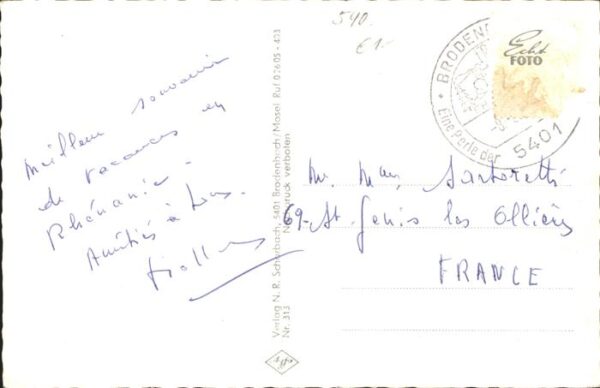 540.
€ 1.-
Echt
FOTO
BRODEN
Eine Perle der
5401
Meilleur souvenir
de vacances en
Rhénanie.
Amitiés à tous.
Mr. Mme Sartoretti
69-St. Genis les Ollières
FRANCE
Verlag N. R. Scherbach, 5401 Brodenbach/Mosel Ruf 02605-403
Nr. 313 Nachdruck verboten